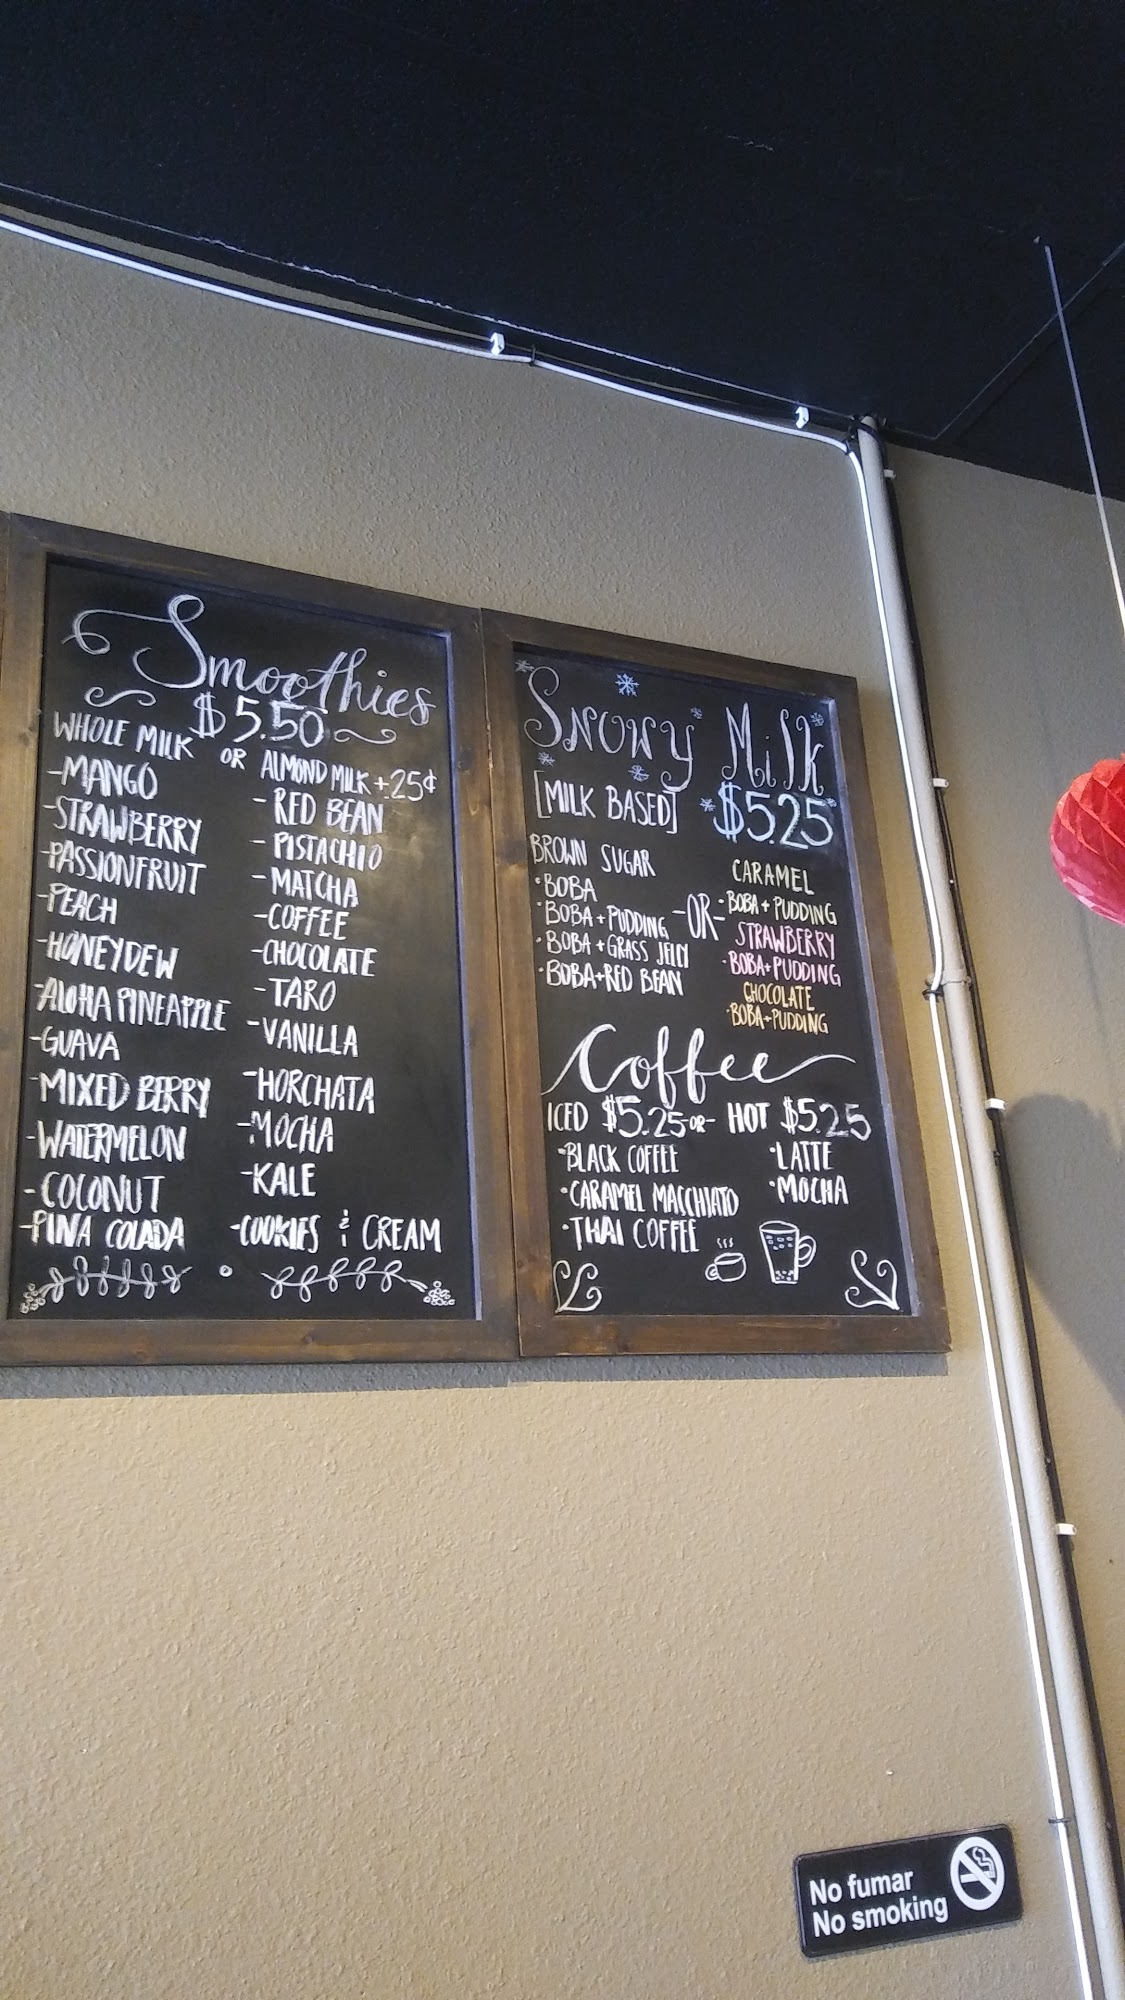 Smoothies
$5.50
WHOLE MILK OR ALMOND MILK +.25¢
-MANGO
-STRAWBERRY
-PASSIONFRUIT
-PEACH
-HONEYDEW
-ALOHA PINEAPPLE
-GUAVA
-MIXED BERRY
-WATERMELON
-COCONUT
-PINA COLADA
-RED BEAN
-PISTACHIO
-MATCHA
-COFFEE
-CHOCOLATE
-TARO
-VANILLA
-HORCHATA
-MOCHA
-KALE
-COOKIES & CREAM
Snowy Milk
[MILK BASED] $5.25
BROWN SUGAR
•BOBA
•BOBA+PUDDING
•BOBA+GRASS JELLY
•BOBA+RED BEAN
-OR-
CARAMEL
•BOBA+PUDDING
STRAWBERRY
•BOBA+PUDDING
CHOCOLATE
•BOBA+PUDDING
Coffee
ICED $5.25 -OR- HOT $5.25
•BLACK COFFEE
•CARAMEL MACCHIATO
•THAI COFFEE
•LATTE
•MOCHA
No fumar
No smoking